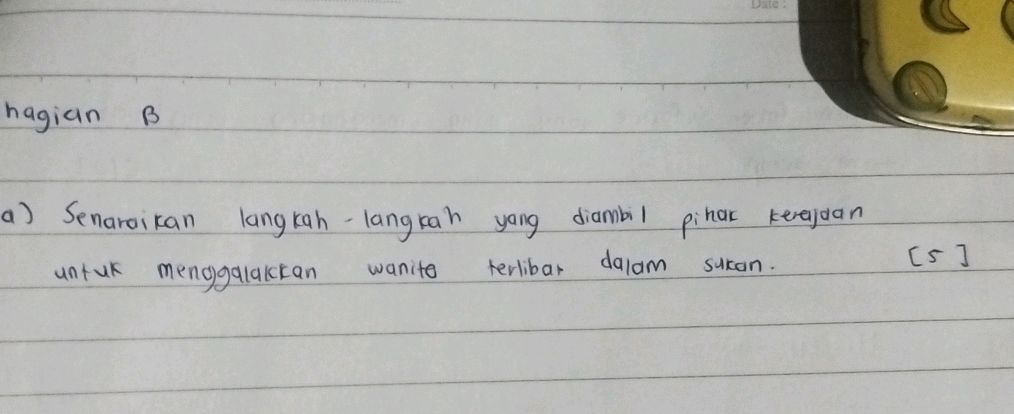 Date :
hagian B
a) Senaraikan langkah - langkah yang diambil pihak kerajaan
untuk menggalakkan wanita terlibat dalam sukan. [5]